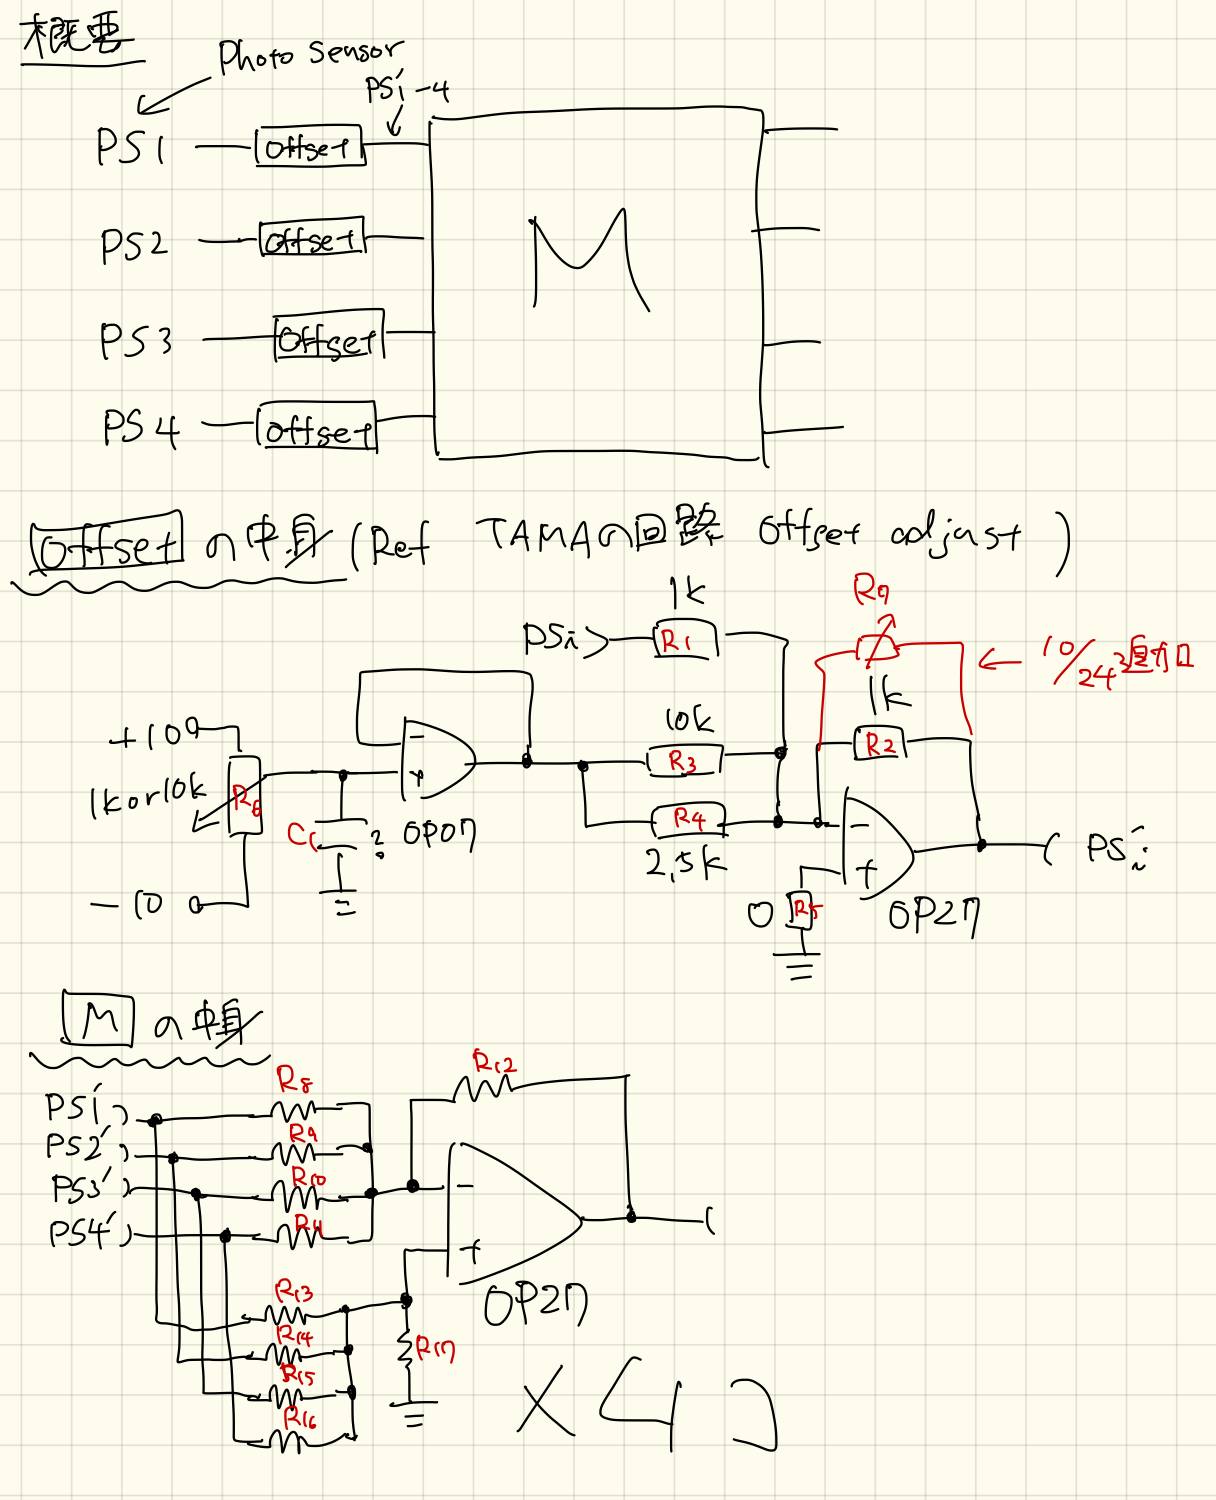 概要
Photo sensor
PSi'-4
PS1 offset
PS2 offset
M
PS3 offset
PS4 offset
offset の中身 (Ref TAMAの回路 offset adjust)
1k
R7
PSi R1
10/24 追加
10k
1k
+10
R3
R2
1k or 10k
R6
R4
C1
?
OP07
2,5k
PSi'
-10
0
R5
OP27
M の中身
R12
R8
PS1'
R9
PS2'
R10
PS3'
R11
PS4'
R13
OP27
R14
R17
R15
R16
×4コ